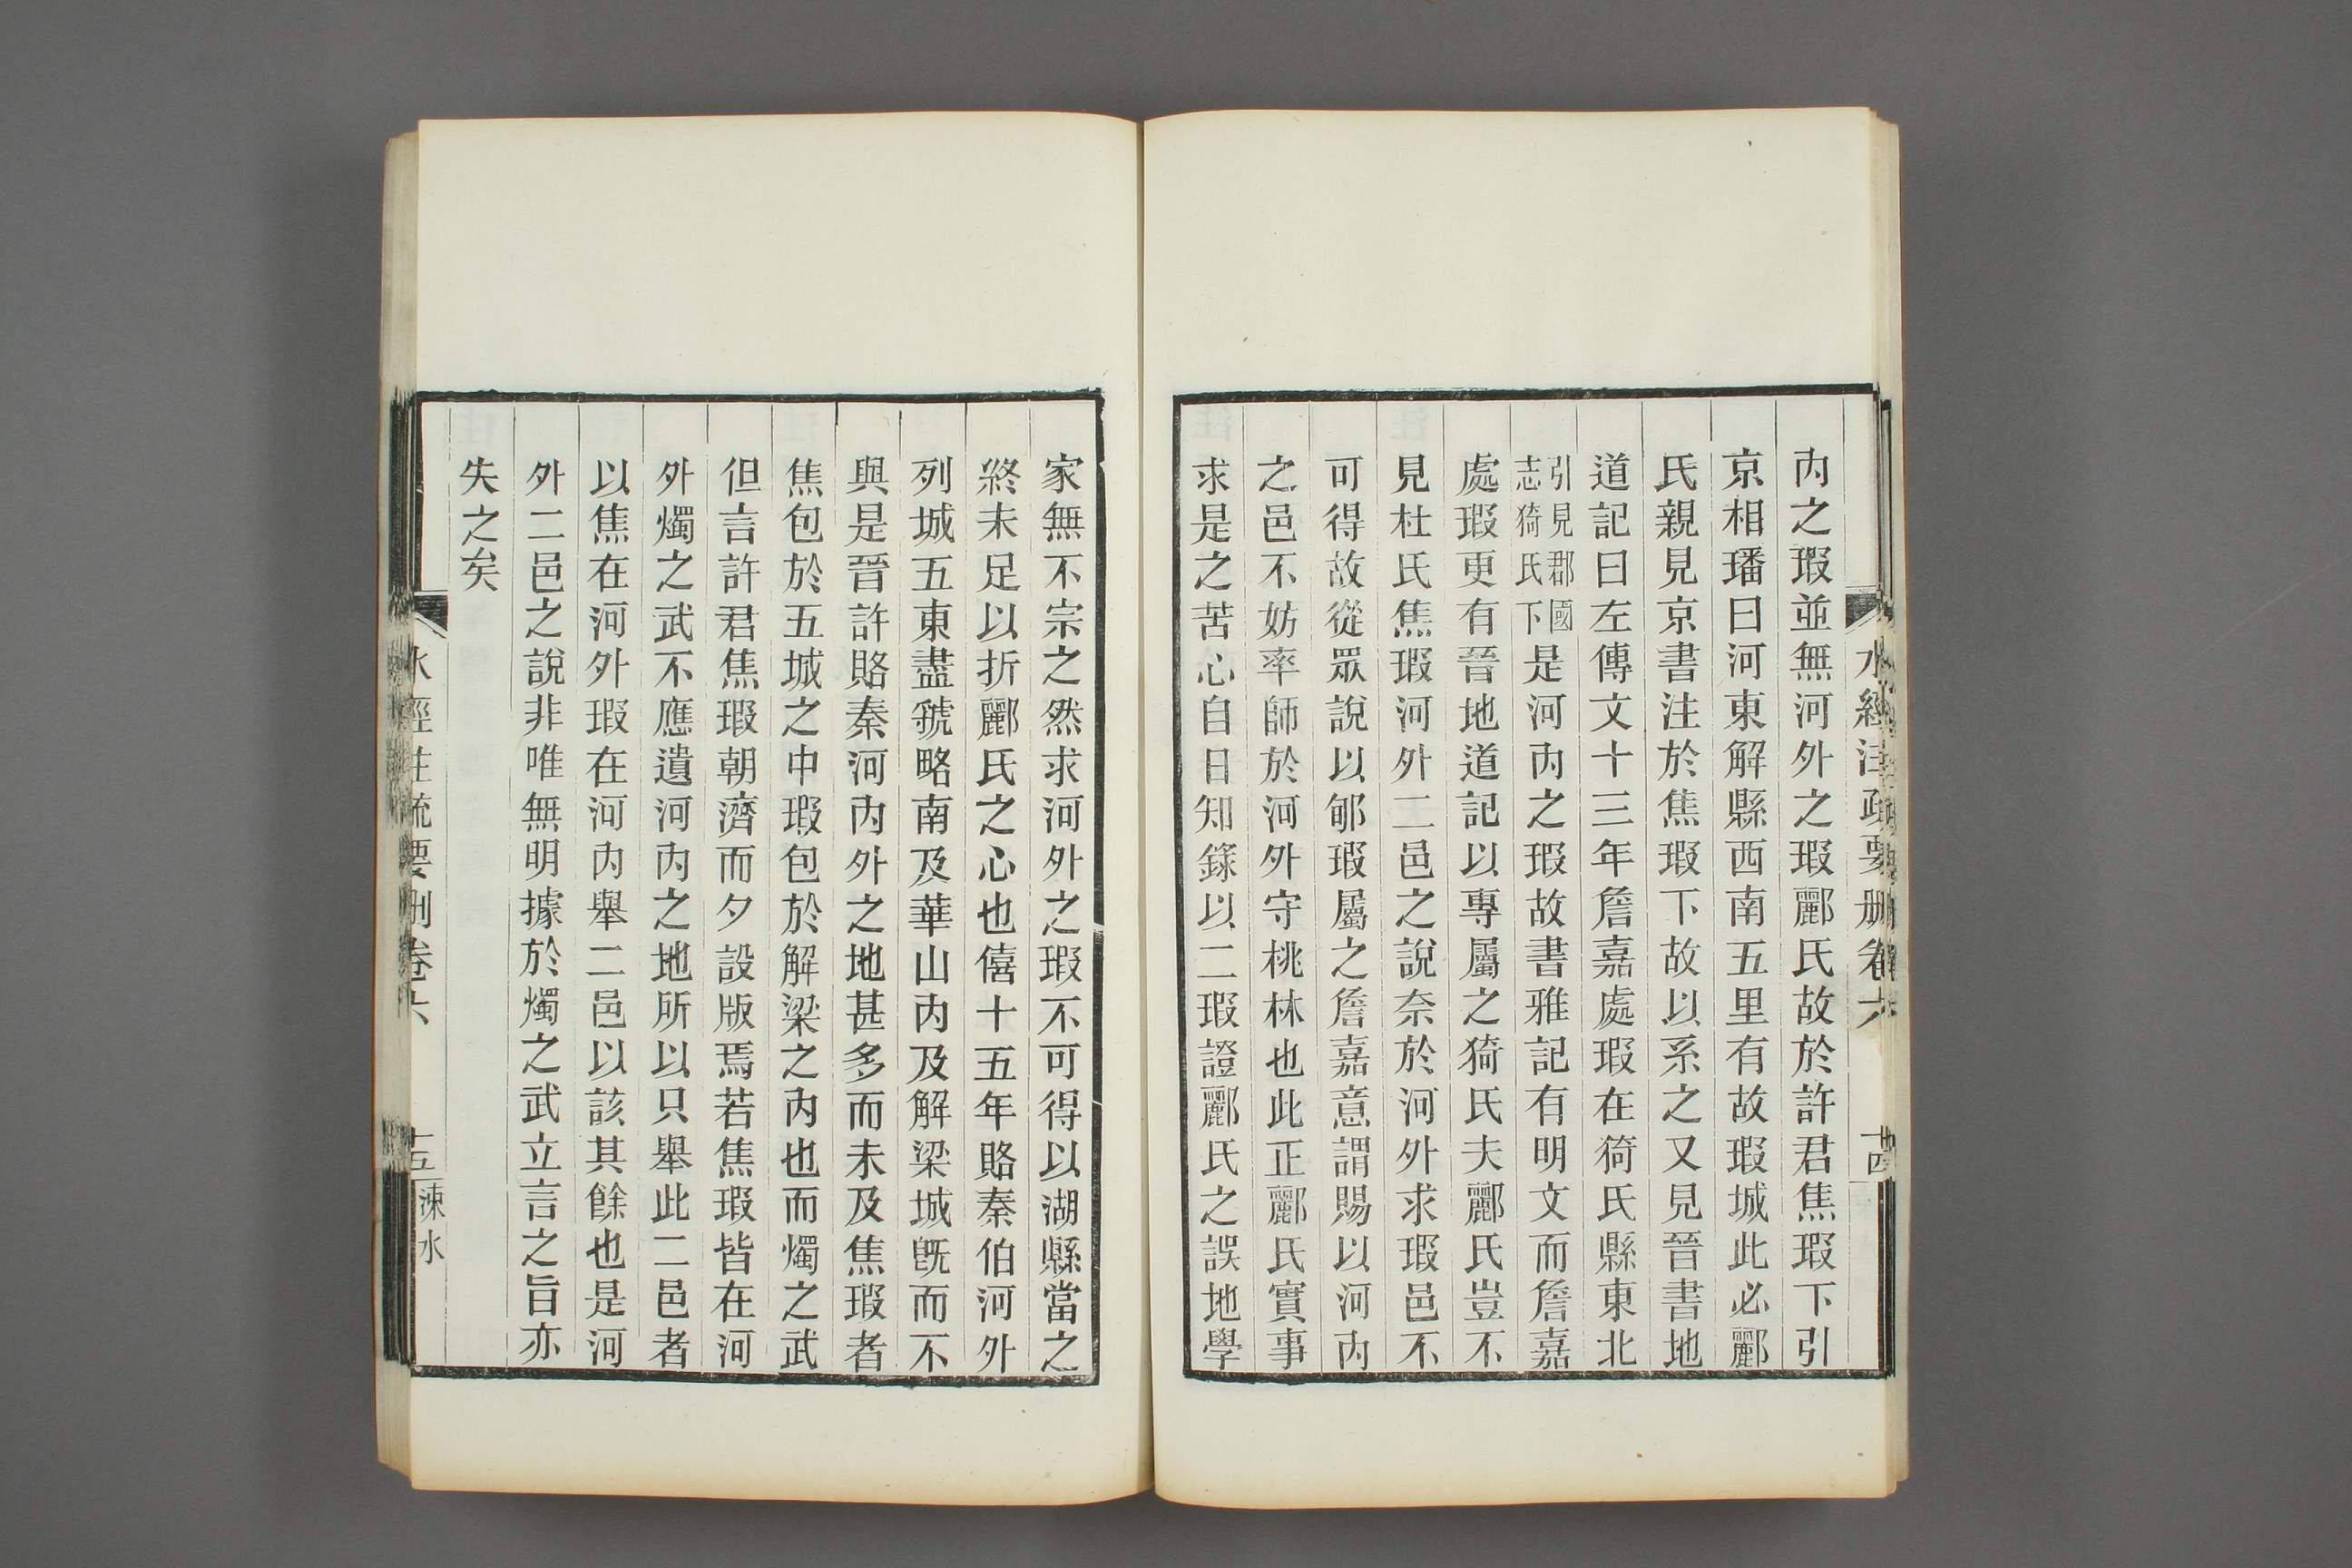 水經注疏要刪卷六
十四
內之瑕並無河外之瑕酈氏故於許君焦瑕下引
京相璠曰河東解縣西南五里有故瑕城此必酈
氏親見京書注於焦瑕下故以系之又見晉書地
道記曰左傳文十三年詹嘉處瑕在猗氏縣東北
引見郡國
志猗氏下
是河內之瑕故書雅記有明文而詹嘉
處瑕更有晉地道記以專屬之猗氏夫酈氏豈不
見杜氏焦瑕河外二邑之說奈於河外求瑕邑不
可得故從眾說以郇瑕屬之詹嘉意謂賜以河內
之邑不妨率師於河外守桃林也此正酈氏實事
求是之苦心自日知錄以二瑕證酈氏之誤地學
家無不宗之然求河外之瑕不可得以湖縣當之
終未足以折酈氏之心也僖十五年賂秦伯河外
列城五東盡虢略南及華山內及解梁城既而不
與是晉許賂秦河內外之地甚多而未及焦瑕者
焦包於五城之中瑕包於解梁之內也而燭之武
但言許君焦瑕朝濟而夕設版焉若焦瑕皆在河
外燭之武不應遺河內之地所以只舉此二邑者
以焦在河外瑕在河內舉二邑以該其餘也是河
外二邑之說非唯無明據於燭之武立言之旨亦
失之矣
水經注疏要刪卷六
十五
涑水